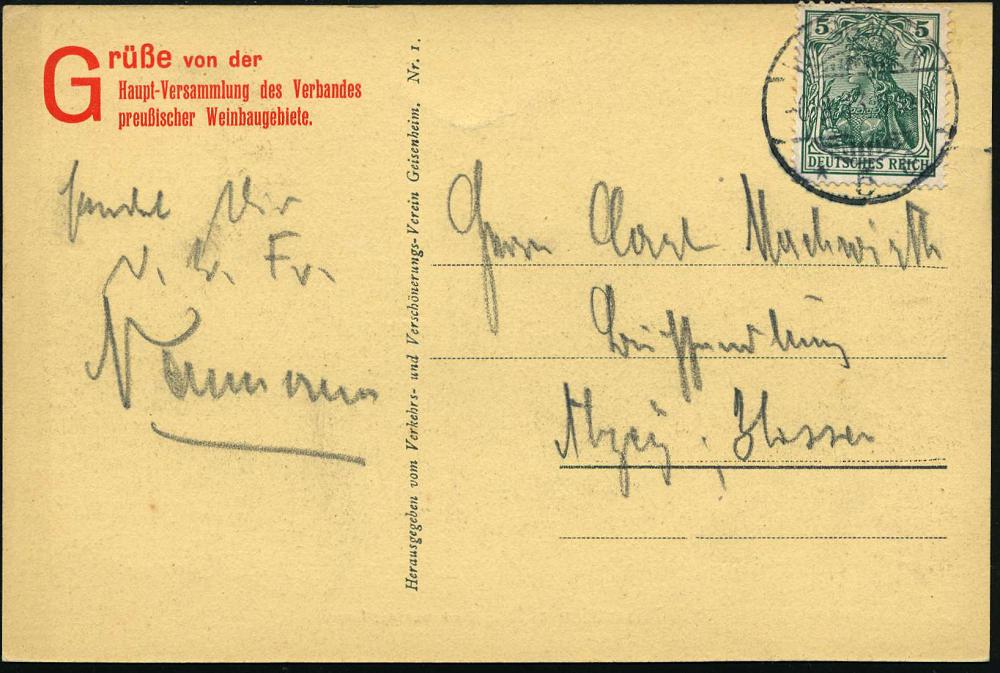 Grüße von der
Haupt-Versammlung des Verbandes
preußischer Weinbaugebiete.
sendet Dir
Fr.
Naumann
Herausgegeben vom Verkehrs- und Verschönerungs-Verein Geisenheim. Nr. 1.
5 5
DEUTSCHES REICH
Herrn Carl Machwirth
Buchhandlung
Alzey, Hessen